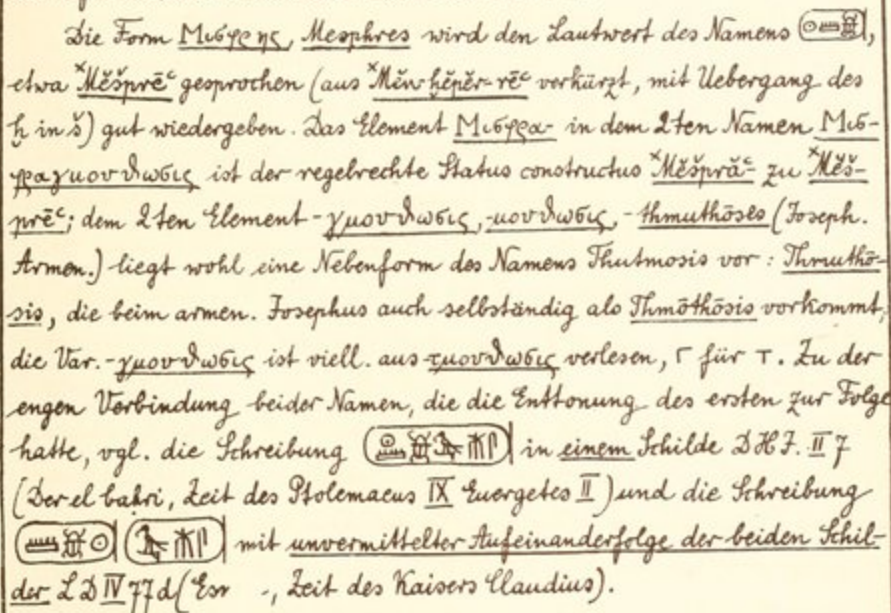 Die Form Μισφρης, Mesphres wird den Lautwert des Namens 𓇳𓏠𓆣,
etwa ˣMĕšprēꜥ gesprochen (aus ˣMĕn ḫĕpĕr-rēꜥ verkürzt, mit Uebergang des
ḫ in š) gut wiedergeben. Das Element Μισφρα- in dem 2ten Namen Μισ-
φραγμουθωσις ist der regelrechte Status constructus ˣMĕšpră- zu ˣMĕš-
prēꜥ; dem 2ten Element -γμουθωσις, -μουθωσις, -thmuthōses (Joseph.
Armen.) liegt wohl eine Nebenform des Namens Thutmosis vor: Thmuthō-
sis, die beim armen. Josephus auch selbständig als Thmōthōsis vorkommt,
die Var. -γμουθωσις ist viell. aus τμουθωσις verlesen, Γ für Τ. Zu der
engen Verbindung beider Namen, die die Enttonung des ersten zur Folge
hatte, vgl. die Schreibung in einem Schilde DHJ. II 7
(Der el bahri, Zeit des Ptolemaeus IX Euergetes II) und die Schreibung
mit unvermittelter Aufeinanderfolge der beiden Schil-
der LD IV 77d (Esn -, Zeit des Kaisers Claudius).